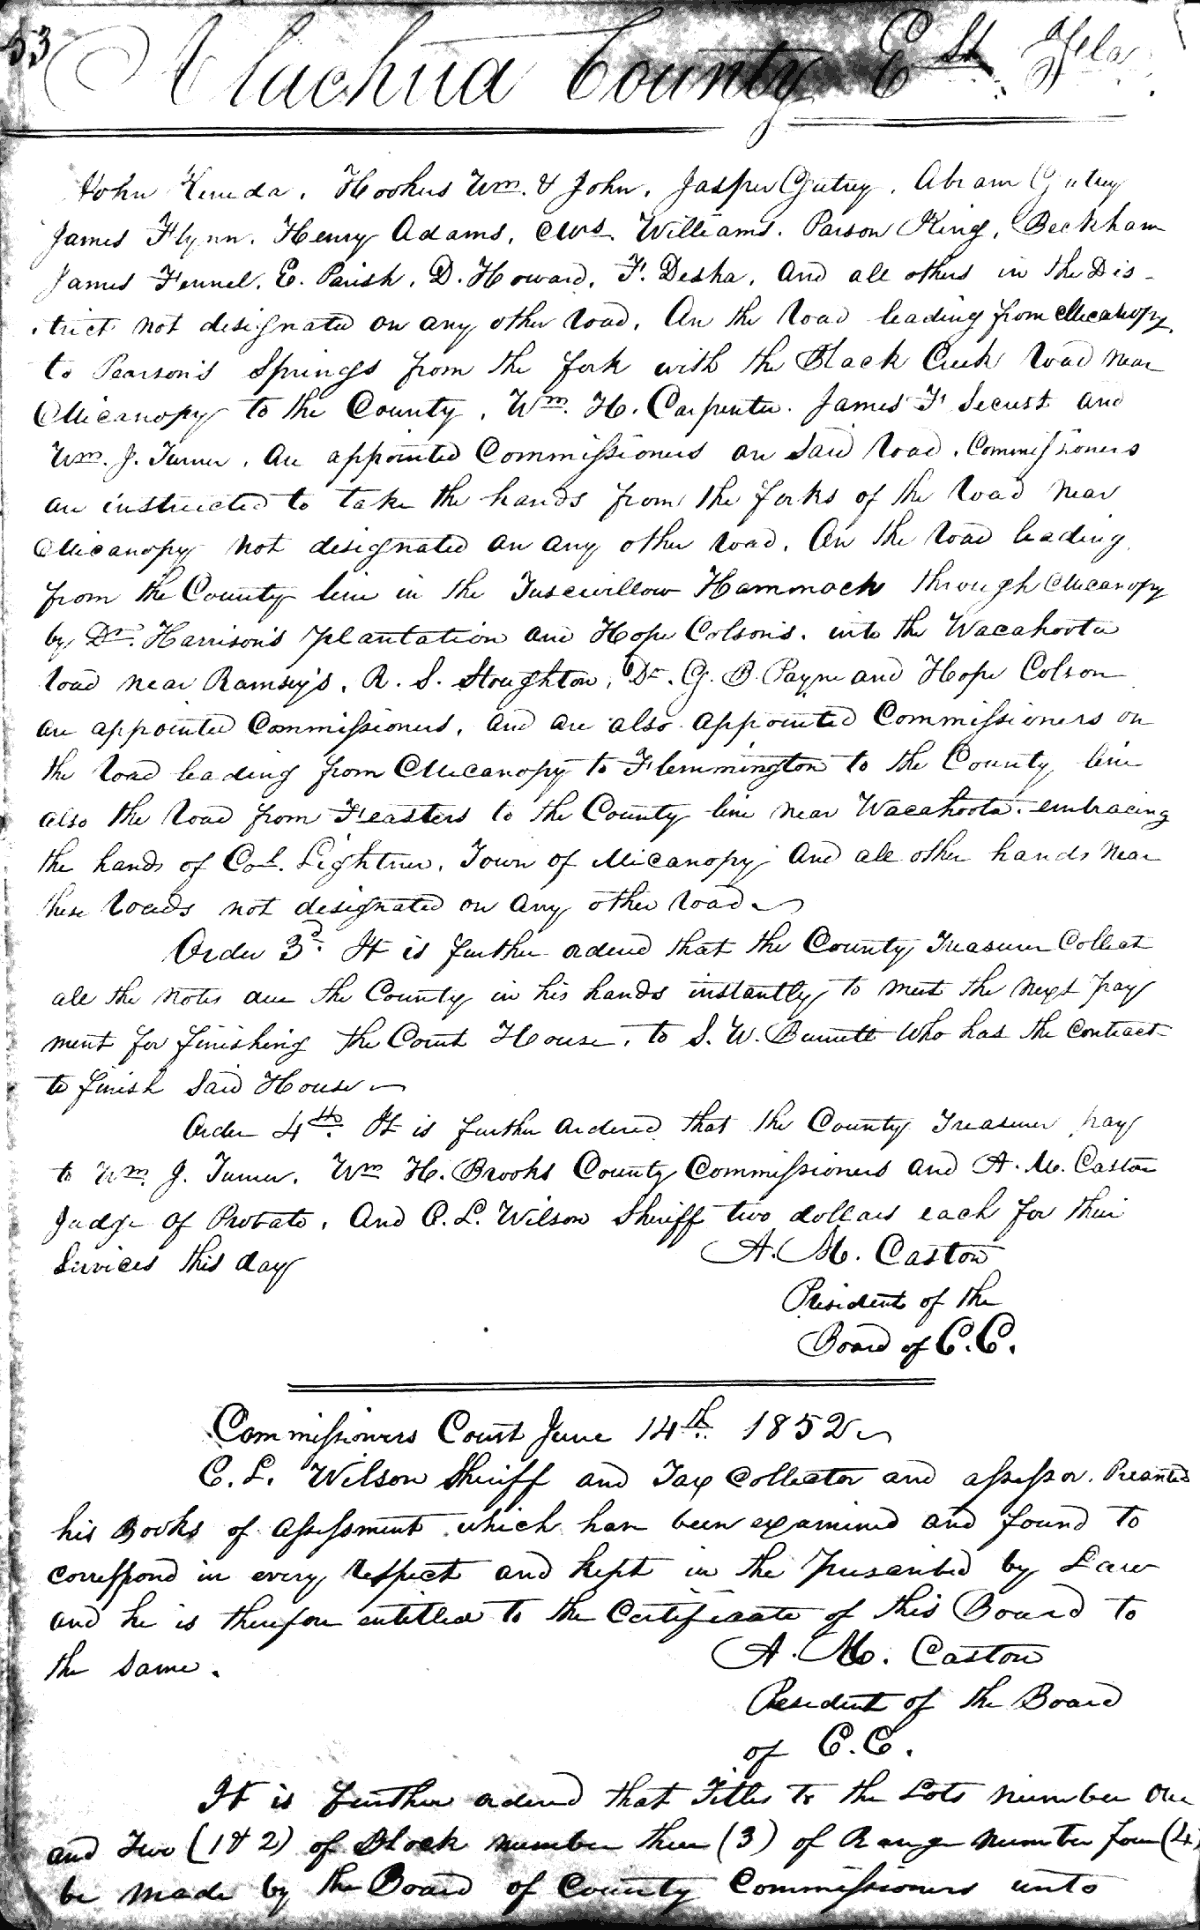 53
Alachua County Est Fla.
John , Hookers Wm. & John, Jasper Gutry, Abram Gutry
James Flynn, Henry Adams, Mrs. Williams. Parson King, Beckham
James Fennel, E. Parish, D. Howard, F. Desha, and all others in the Dis-
trict not designated on any other road. On the road leading from Micanopy
to Pearson's Springs from the fork with the Black Creek road near
Micanopy to the County, Wm. H. Carpenter. James F Secust and
Wm. J. Turner, are appointed Commissioners on said road. Commissioners
are instructed to take the hands from the forks of the road near
Micanopy not designated on any other road. On the road leading
from the County line in the Tuscwillow Hammock through Micanopy
by Dr. Harrison's plantation and Hope Colson's. into the Wacahoota
road near Ramsey's. R. S. Stoughton, Dr. G. B. Payne and Hope Colson
are appointed Commissioners, and are also appointed Commissioners on
the road leading from Micanopy to Flemmington to the County line
also the road from Feasters to the County line near Wacahoota. embracing
the hands of Col. Lightner, Town of Micanopy and all other hands near
these roads not designated on any other road
Order 3d. It is further ordered that the County Treasurer Collect
all the notes due the County in his hands instantly to meet the next pay
ment for finishing the Court House, to S. W. Burnett who has the contract
to finish said House
Order 4th. It is further ordered that the County Treasurer pay
to Wm. J. Turner, Wm H. Brooks County Commissioners and A. M. Caston
Judge of Probate, and C. L. Wilson Sheriff two dollars each for their
Services this day
A. M. Caston
President of the
Board of C.C.
Commissioners Court June 14th. 1852
C. L. Wilson Sheriff and Tax Collector and assessor. Presented
his Books of assessment which have been examined and found to
correspond in every respect and kept in the prescribed by Law
and he is therefore entitled to the Certificate of this Board to
the same.
A. M. Caston
President of the Board
of C.C.
It is further ordered that Titles to the Lots number One
and Two (1 & 2) of Block number three (3) of Range number four (4)
be made by the Board of County Commissioners unto